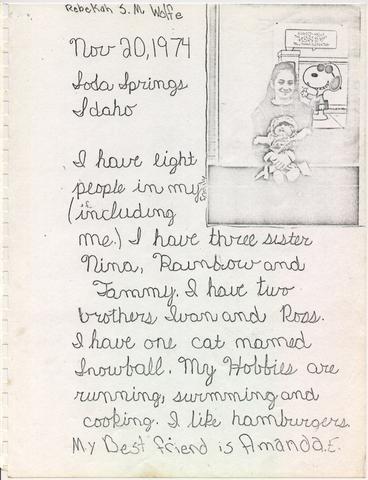 Rebekah S. M Wolfe
Nov 20, 1974
Soda Springs
Idaho
I have eight
people in my family
(including
me.) I have three sister
Nina, Rainbow and
Tammy. I have two
brothers Ivan and Ross.
I have one cat mamed
Snowball. My Hobbies are
running, surmming and
cooking. I like hamburgers.
My Best friend is Amanda.E.